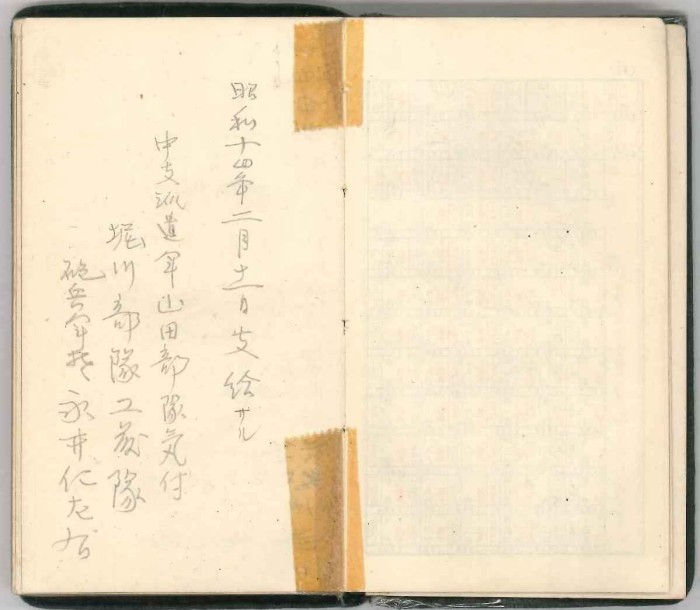 昭和十四年二月十一日支給サル
中支派遣軍山田部隊気付
堀川部隊工藤隊
砲兵軍曹 永井仁左